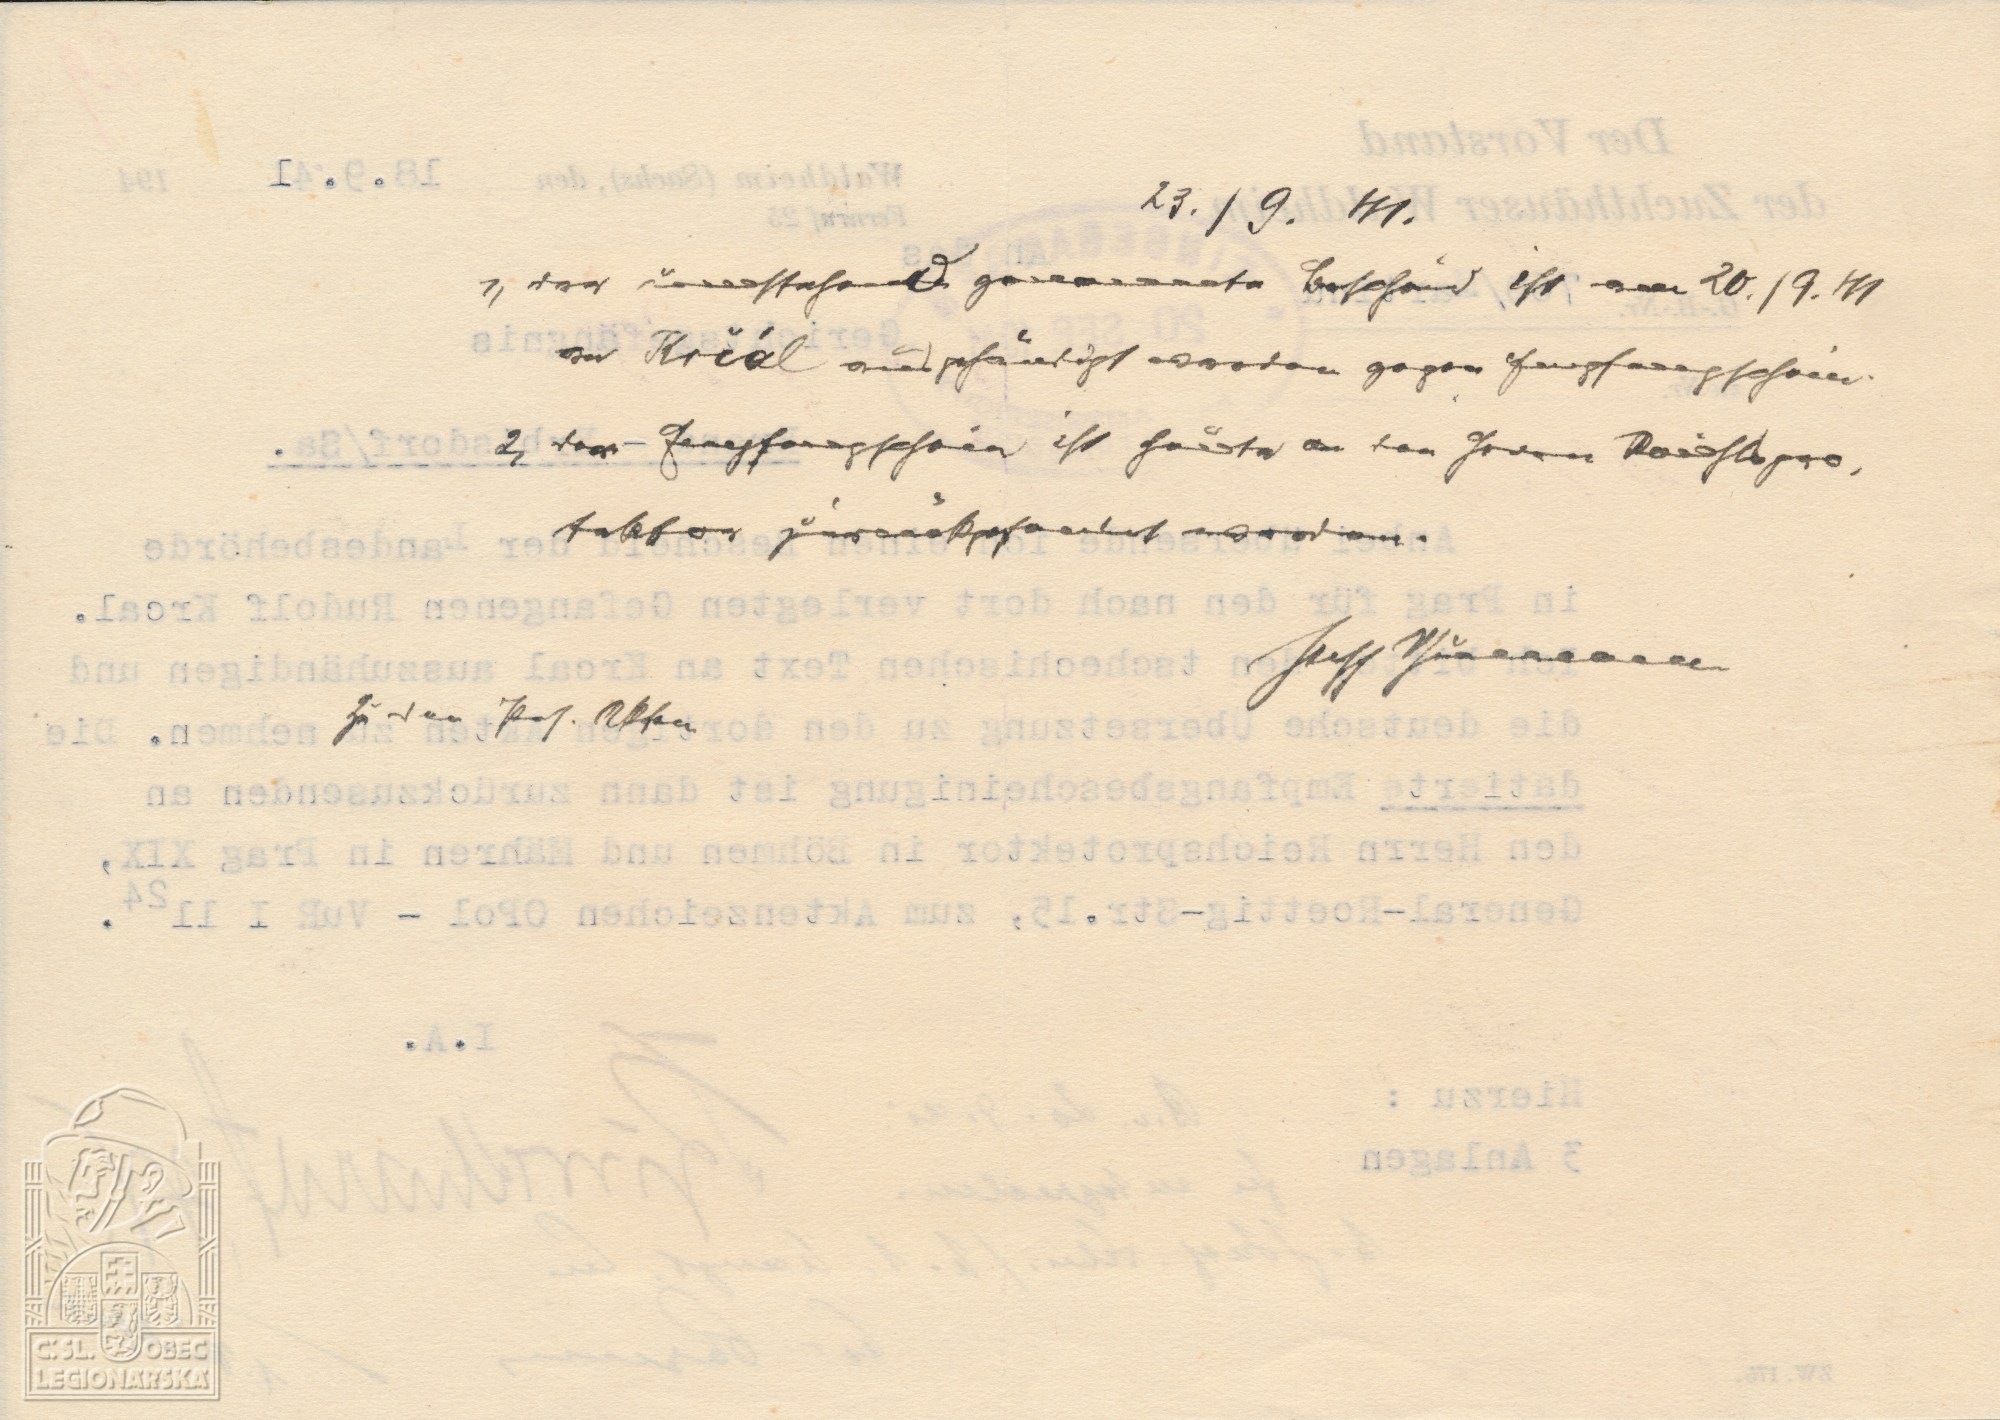 23./9. 41.
1, der umstehend genannte Bescheid ist am 20./9. 41
an Krčál ausgehändigt worden gegen Empfangschein.
2, der Empfangschein ist heute an den Herrn Reichspro-
tektor zurückgesandt worden.
Zu den Pers. Akten
Der Vorstand
der Zuchthäuser Waldheim
Waldheim (Sachs), den 18.9.41 194
Fernruf 25
An das
Gerichtsgefängnis
Anbei übersende ich einen Bescheid der Landesbehörde
in Prag für den nach dort verlegten Gefangenen Rudolf Krcal.
Ich bitte den tschechischen Text an Krcal auszuhändigen und
die deutsche Übersetzung zu den dortigen Akten zu nehmen. Die
datierte Empfangsbescheinigung ist dann zurückzusenden an
den Herrn Reichsprotektor in Böhmen und Mähren in Prag XIX,
General-Roettig-Str.15, zum Aktenzeichen OPol - VuR I 11 24.
I.A.
Hierzu :
3 Anlagen
ZW. 176.
Č.SL. OBEC
LEGIONÁŘSKÁ